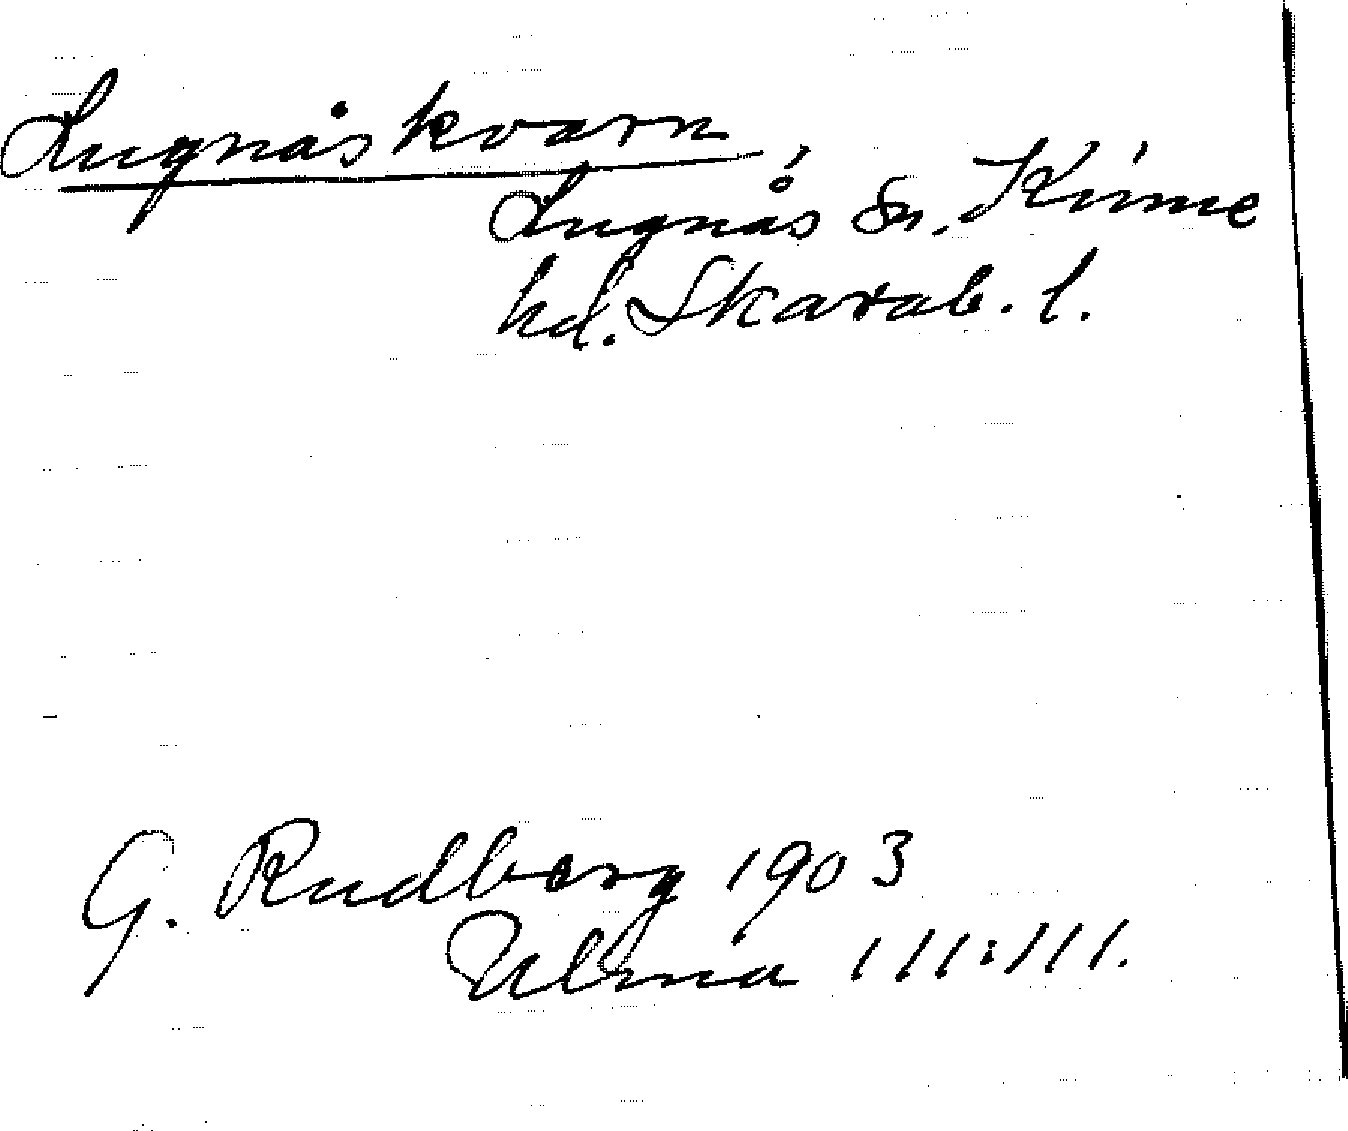 Lugnåskvarn,
Lugnås sn. Kinne
hd. Skarab. l.
G. Rudberg 1903
Ulma 111:111.